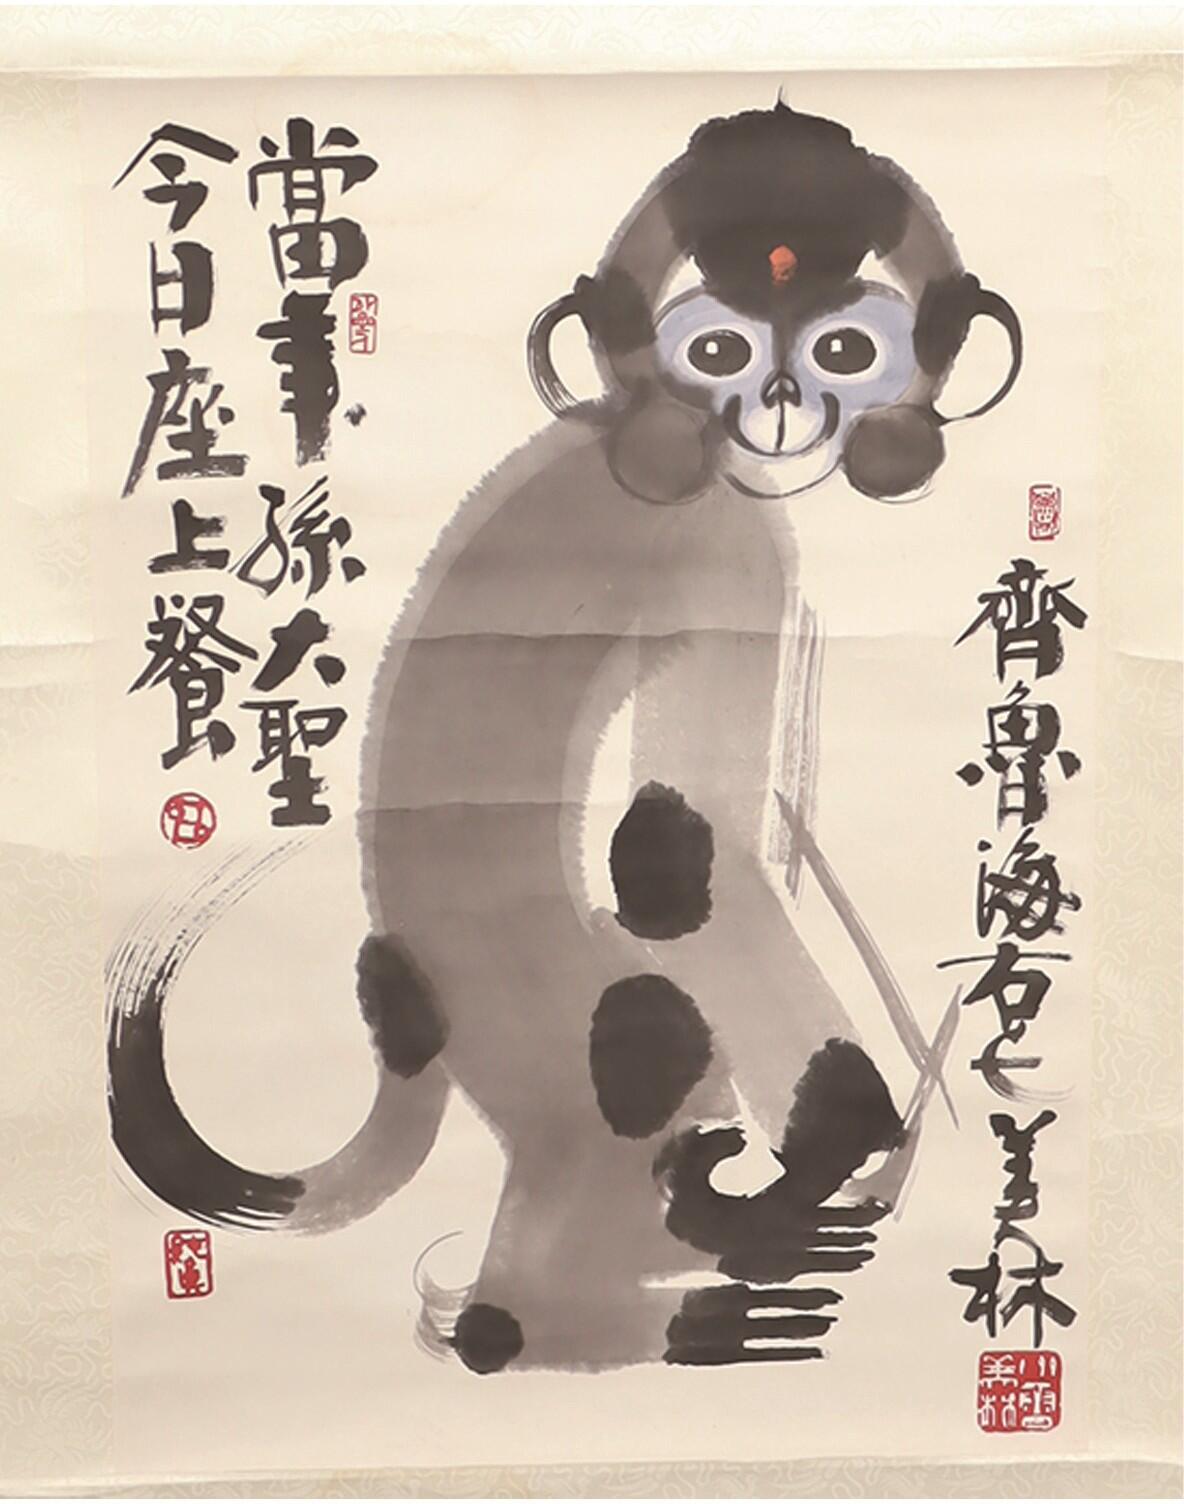 當年孫大聖
今日座上餐
齊魯海右
美林